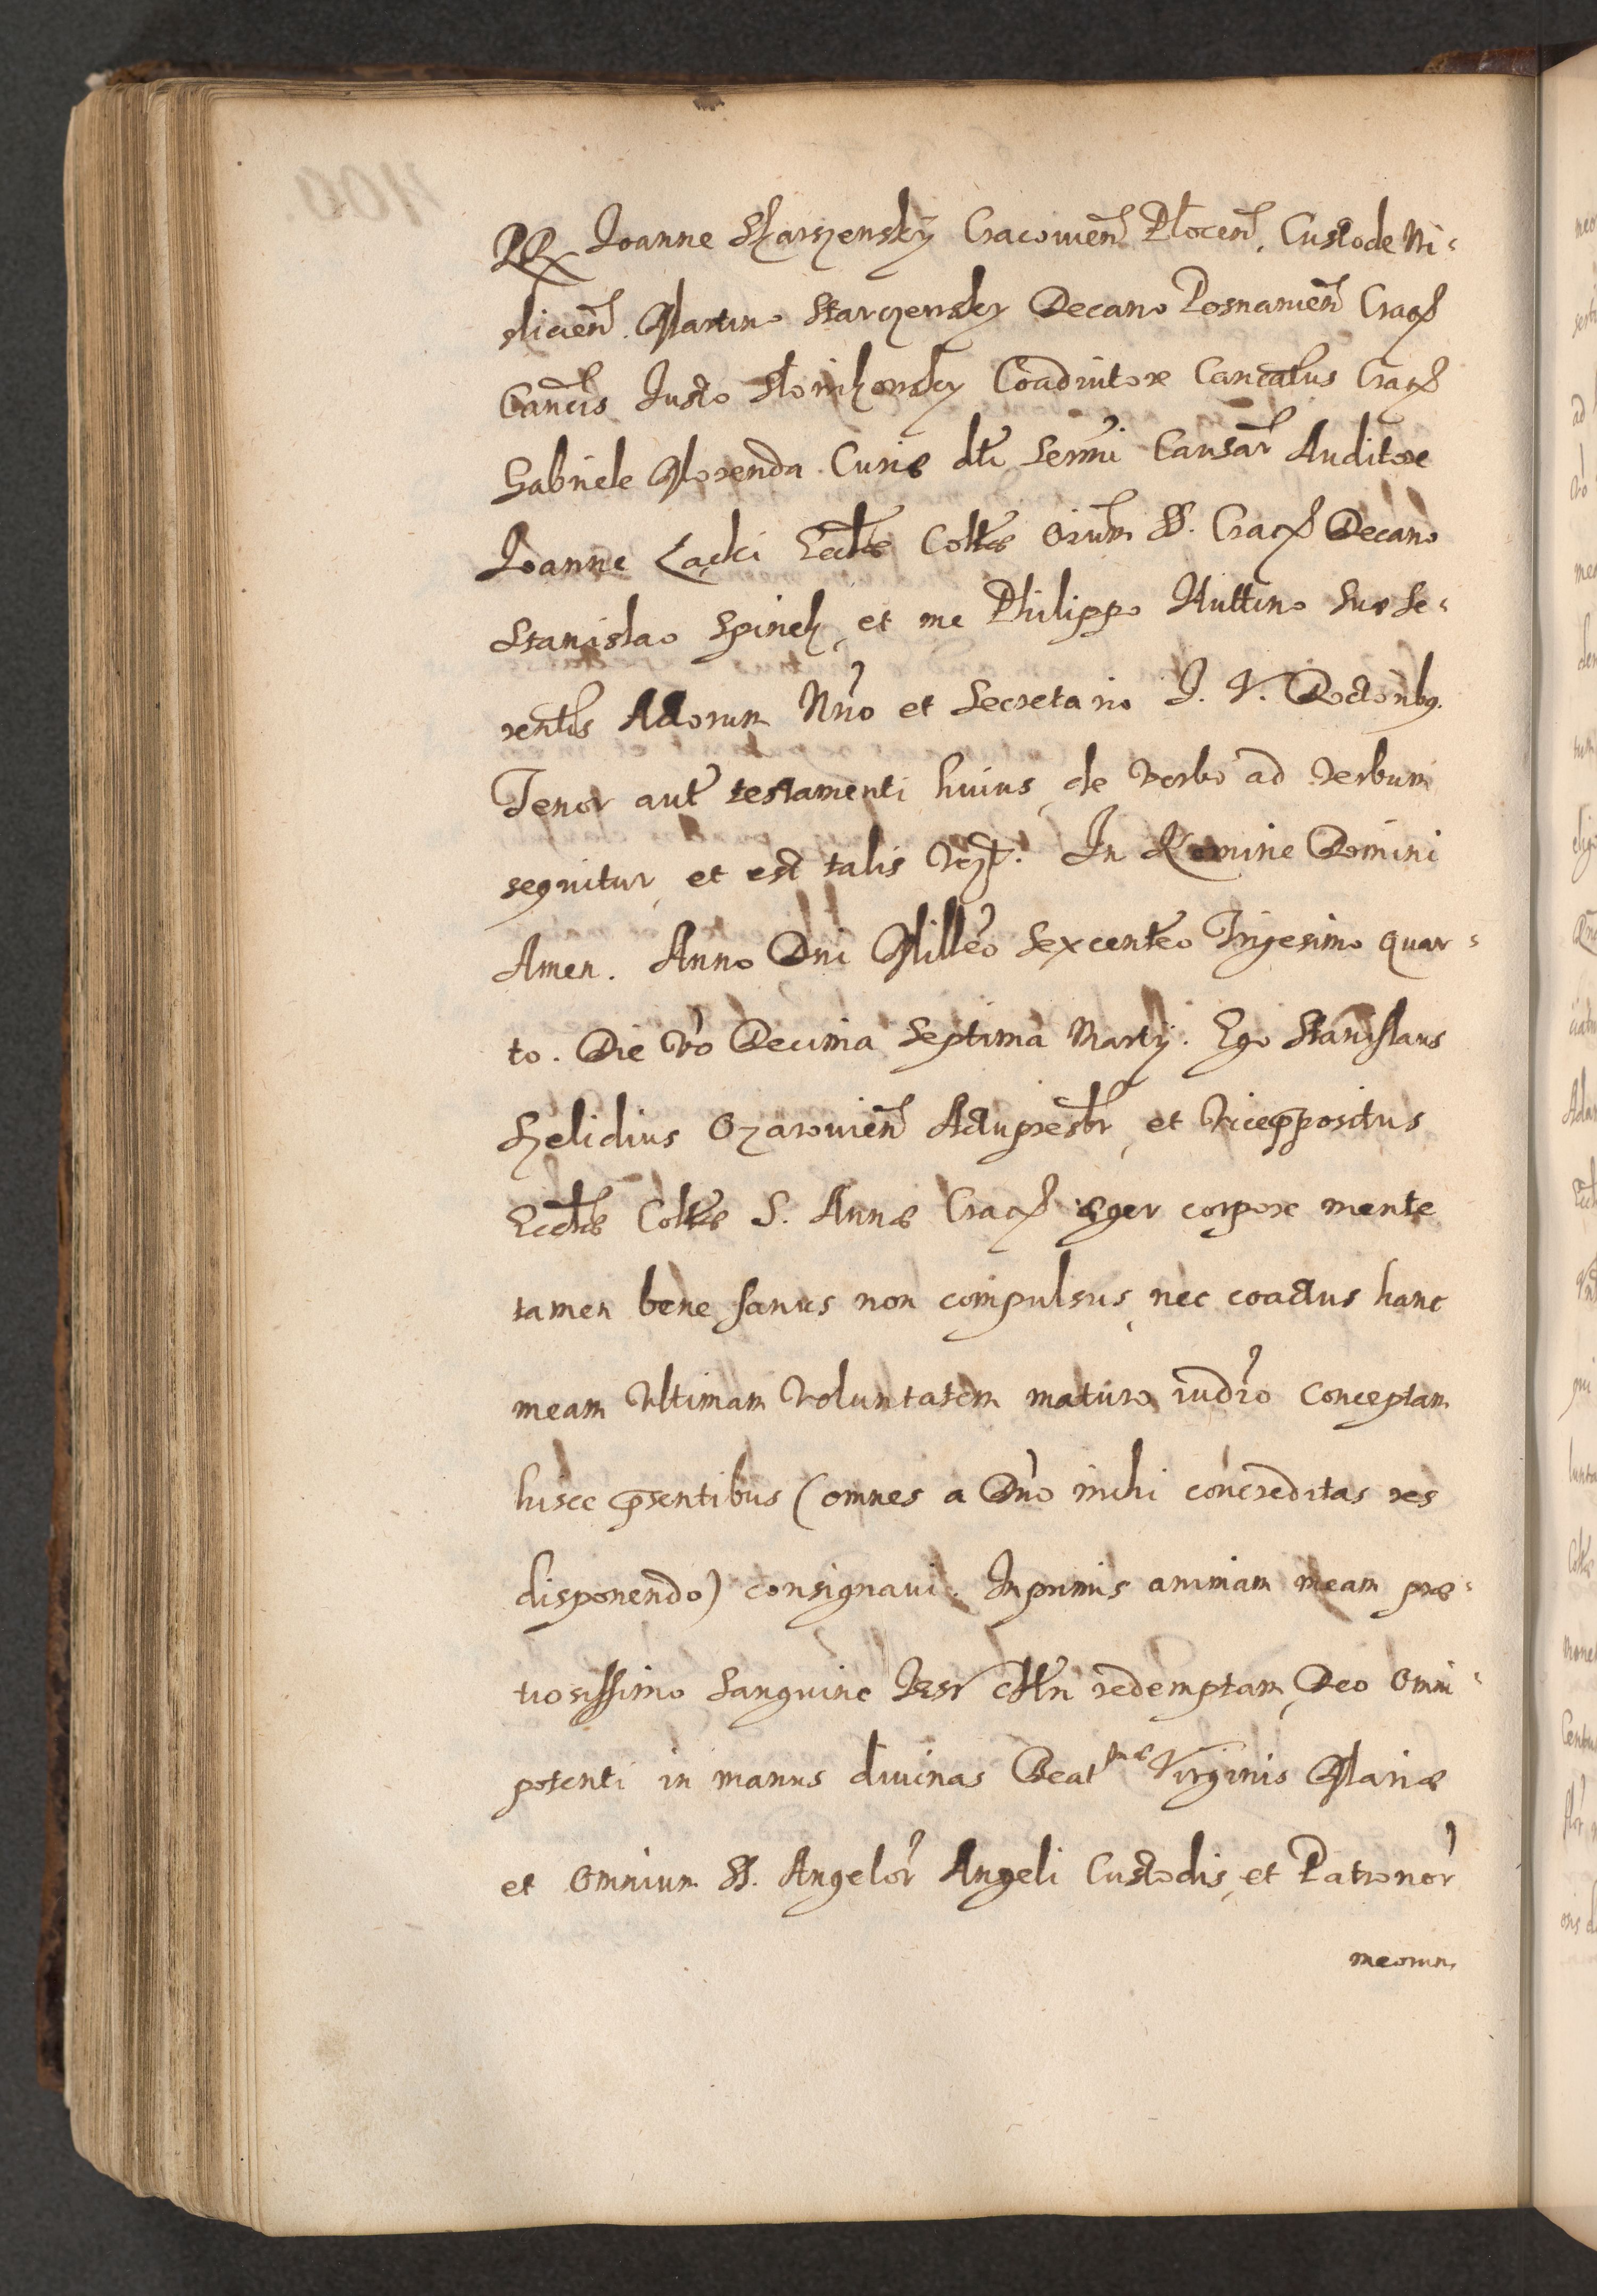 RR Joanne Skarszensky Cracouien̄ Plocen̄, Custode Vi-
sliciēn. Martino Starczensky Decano Posnanien̄ Crac͂
Canc̄is Justo Słowikowsky Coadiutore Cancālus Crac͂
Gabriele Morenda Curiæ dt̄i Sermi Causar̄ Auditore
Joanne Łącki Eccłæ Collæ Oīum SS. Crac͂ Decano
Stanislao Spinek, et me Philippo Huttino Suæ Se-
rentis Actorum Nrio et Secretario J. V. Doctoribꝯ.
Tenor aut̄ testamenti huius de verbo ad verbum
sequitur, et est talis vꝫt. In Nomine Domini
Amen. Anno Dni Milleo Sexcenteo Trigesimo quar-
to. Die vo Decima Septima Martij. Ego Stanislaus
Szelidius Ozarouien̄ Actupresbr, et Vicepposittus
Ecclæ Collæ S. Annæ Crac͂ æger corpore mente
tamen bene sanus non compulsus, nec coactus hanc
meam Vltimam Voluntatem maturo iudīo conceptam
hisce p̄sentibus (omnes a Dno mihi concreditas res
disponendo) consignaui. Inprimis animam meam præ-
tiosissimo Sanguine Iesv Chr̄i redemptam, Deo Omni-
potenti in manus diuinas Beat^mæ Virginis Mariæ
et Omnium SS. Angelor̄ Angeli Custodis, et Patronor̄
meorum